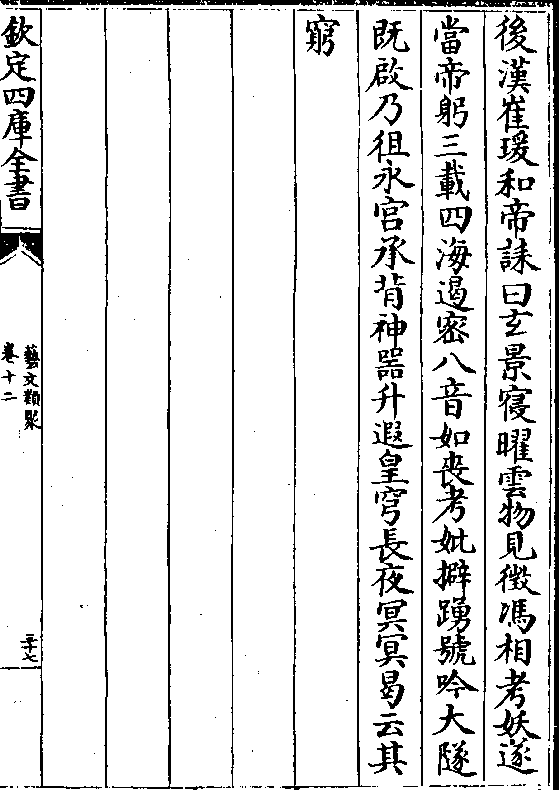 後漢崔瑗和帝誄曰玄景寢曜雲物見徴馮相考妖遂
當帝躬三載四海遏密八音如喪考妣擗踴號吟大隧
既啟乃徂永宫承背神器升遐皇穹長夜冥冥曷云其
窮
欽定四庫全書
藝文類聚
卷十二
二十七